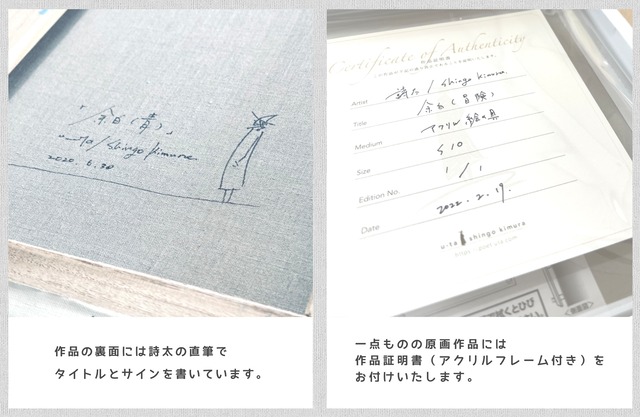 「余白(青)」
u-ta / shingo kimura
2020. 6. 30
作品の裏面には詩太の直筆で
タイトルとサインを書いています。
Certificate of Authenticity
作品証明書
Artist 詩太 / shingo kimura.
Title 余白(冒険)
Medium アクリル絵の具
Size S10
Edition No. 1/1
Date 2022. 2. 19.
u-ta shingo kimura
一点ものの原画作品には
作品証明書(アクリルフレーム付き)を
お付けいたします。